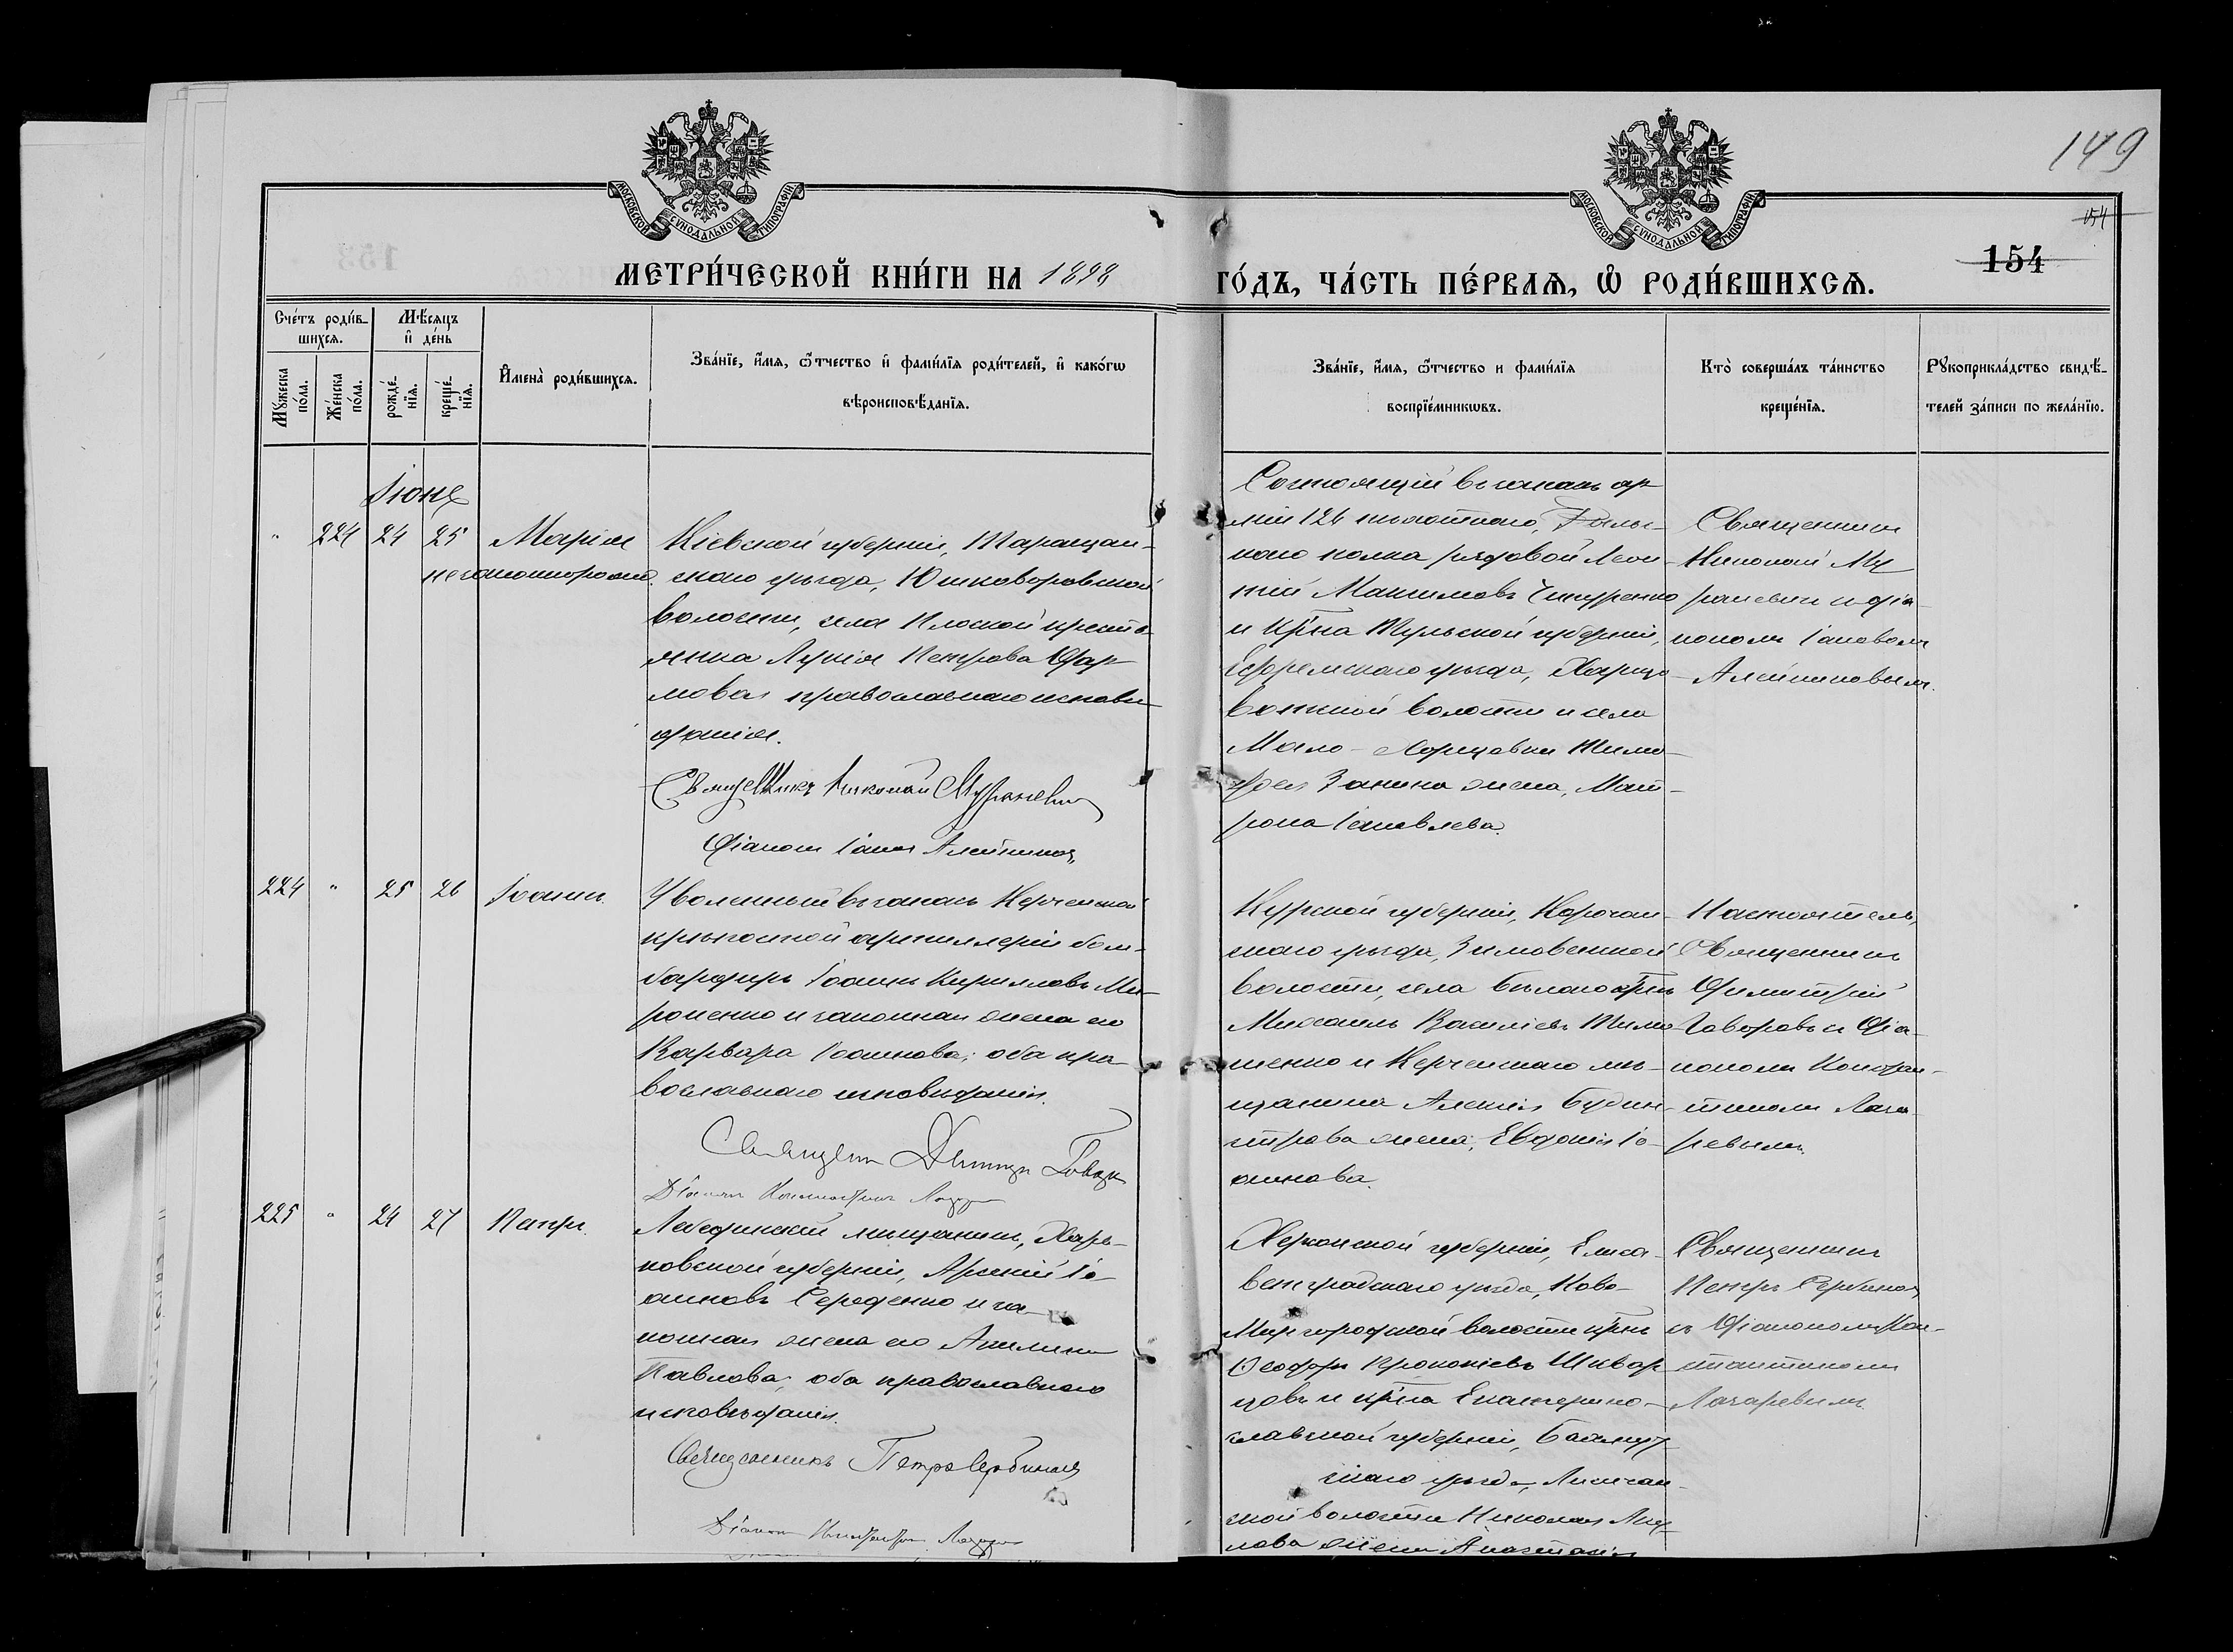 149
154
154
МОСКОВСКОЙ СѴНОДАЛЬНОЙ ТИПОГРАФІИ
МОСКОВСКОЙ СѴНОДАЛЬНОЙ ТИПОГРАФІИ
МЕТРИ́ЧЕСКОЙ КНИ́ГИ НА 1898
ГО́ДЪ, ЧА́СТЬ ПЕ́РВАѦ, Ѡ҆ РОДИ́ВШИХСѦ.
Сче́тъ роди́в-
шихсѧ.
Мѣ́сѧцъ
и҆ де́нь
Мꙋ́жеска
по́ла.
Же́нска
по́ла.
рожде́-
нїѧ.
креще́-
нїѧ.
И҆мена̀ роди́вшихсѧ.
Зва́нїе, и҆́мѧ, ѻ҆́тчество и҆ фами́лїѧ роди́телей, и҆ како́гѡ
вѣроисповѣ́данїѧ.
Зва́нїе, и҆́мѧ, ѻ҆́тчество и фами́лїѧ
воспрїе́мникѡвъ.
Кто̀ соверша́лъ та́инство
креще́нїѧ.
Рꙋкоприкла́дство свидѣ́-
телей за́писи по жела́нїю.
Іюнь
" 224 24 25 Марія
незаконнорожд.
Кіевской губерніи, Таращан-
скаго уѣзда, Юшковоровской
волости, села Плоской кресть-
янка Лукія Петрова
православнаго исповѣ-
данія.
Священникъ Николай Мураневич
Діаконъ Іаковъ Алейников
Состоящій въ запасѣ ар-
міи 126 пѣхотнаго, Рыль-
скаго полка рядовой Леон-
тій Максимовъ
и кр-ка Тульской губерніи,
Ефремскаго уѣзда,
волости и села
Мало-
Занина жена, Мат-
рона Іаковлева.
Священникъ
Николай Му
раневич и діа-
кономъ Іаковомъ
Алейниковымъ.
224 " 25 26 Іоаннъ.
Уволенный въ запасъ Керченской
крѣпостной артиллеріи бом-
бардиръ Іоаннъ Кирилловъ Ми-
роненко и законная жена его
Варвара Іоаннова; оба пра-
вославнаго исповѣданія.
Священ Димитр Говоров
Діаконъ Константинъ Лазарев
Курской губерніи, Корочан-
скаго уѣзда, Зимовенской
волости, села Бѣлаго кр-нъ
Михаилъ Василіевъ Тимо-
шенко и Керченскаго мѣ-
щанина Алексія
жена, Евдокія Іо-
аннова.
Настоятель,
Священникъ
Димитрій
Говоровъ и Діа-
кономъ Констан-
тиномъ Лаза-
ревымъ.
225 " 24 27 Петръ.
Лебединскій мѣщанинъ, Харь-
ковской губерніи, Арсеній Іо-
анновъ Середенко и за-
конная жена его Акилина
Павлова; оба православнаго
исповѣданія.
Священникъ Петръ Сербинов
Діаконъ Константин Лазарев
Херсонской губерніи, Елиса-
ветградскаго уѣзда, Ново-
Миргородской волости кр-нъ
Ѳеодоръ Прокопіевъ Шквар
цовъ и кр-ка Екатерино-
славской губерніи, Бахмут
скаго уѣзда, Лисичан-
ской волости Николая Аку
лова жена Анастасія
Священникъ
Петръ Сербинов
съ Діакономъ Кон-
стантиномъ
Лазаревымъ.